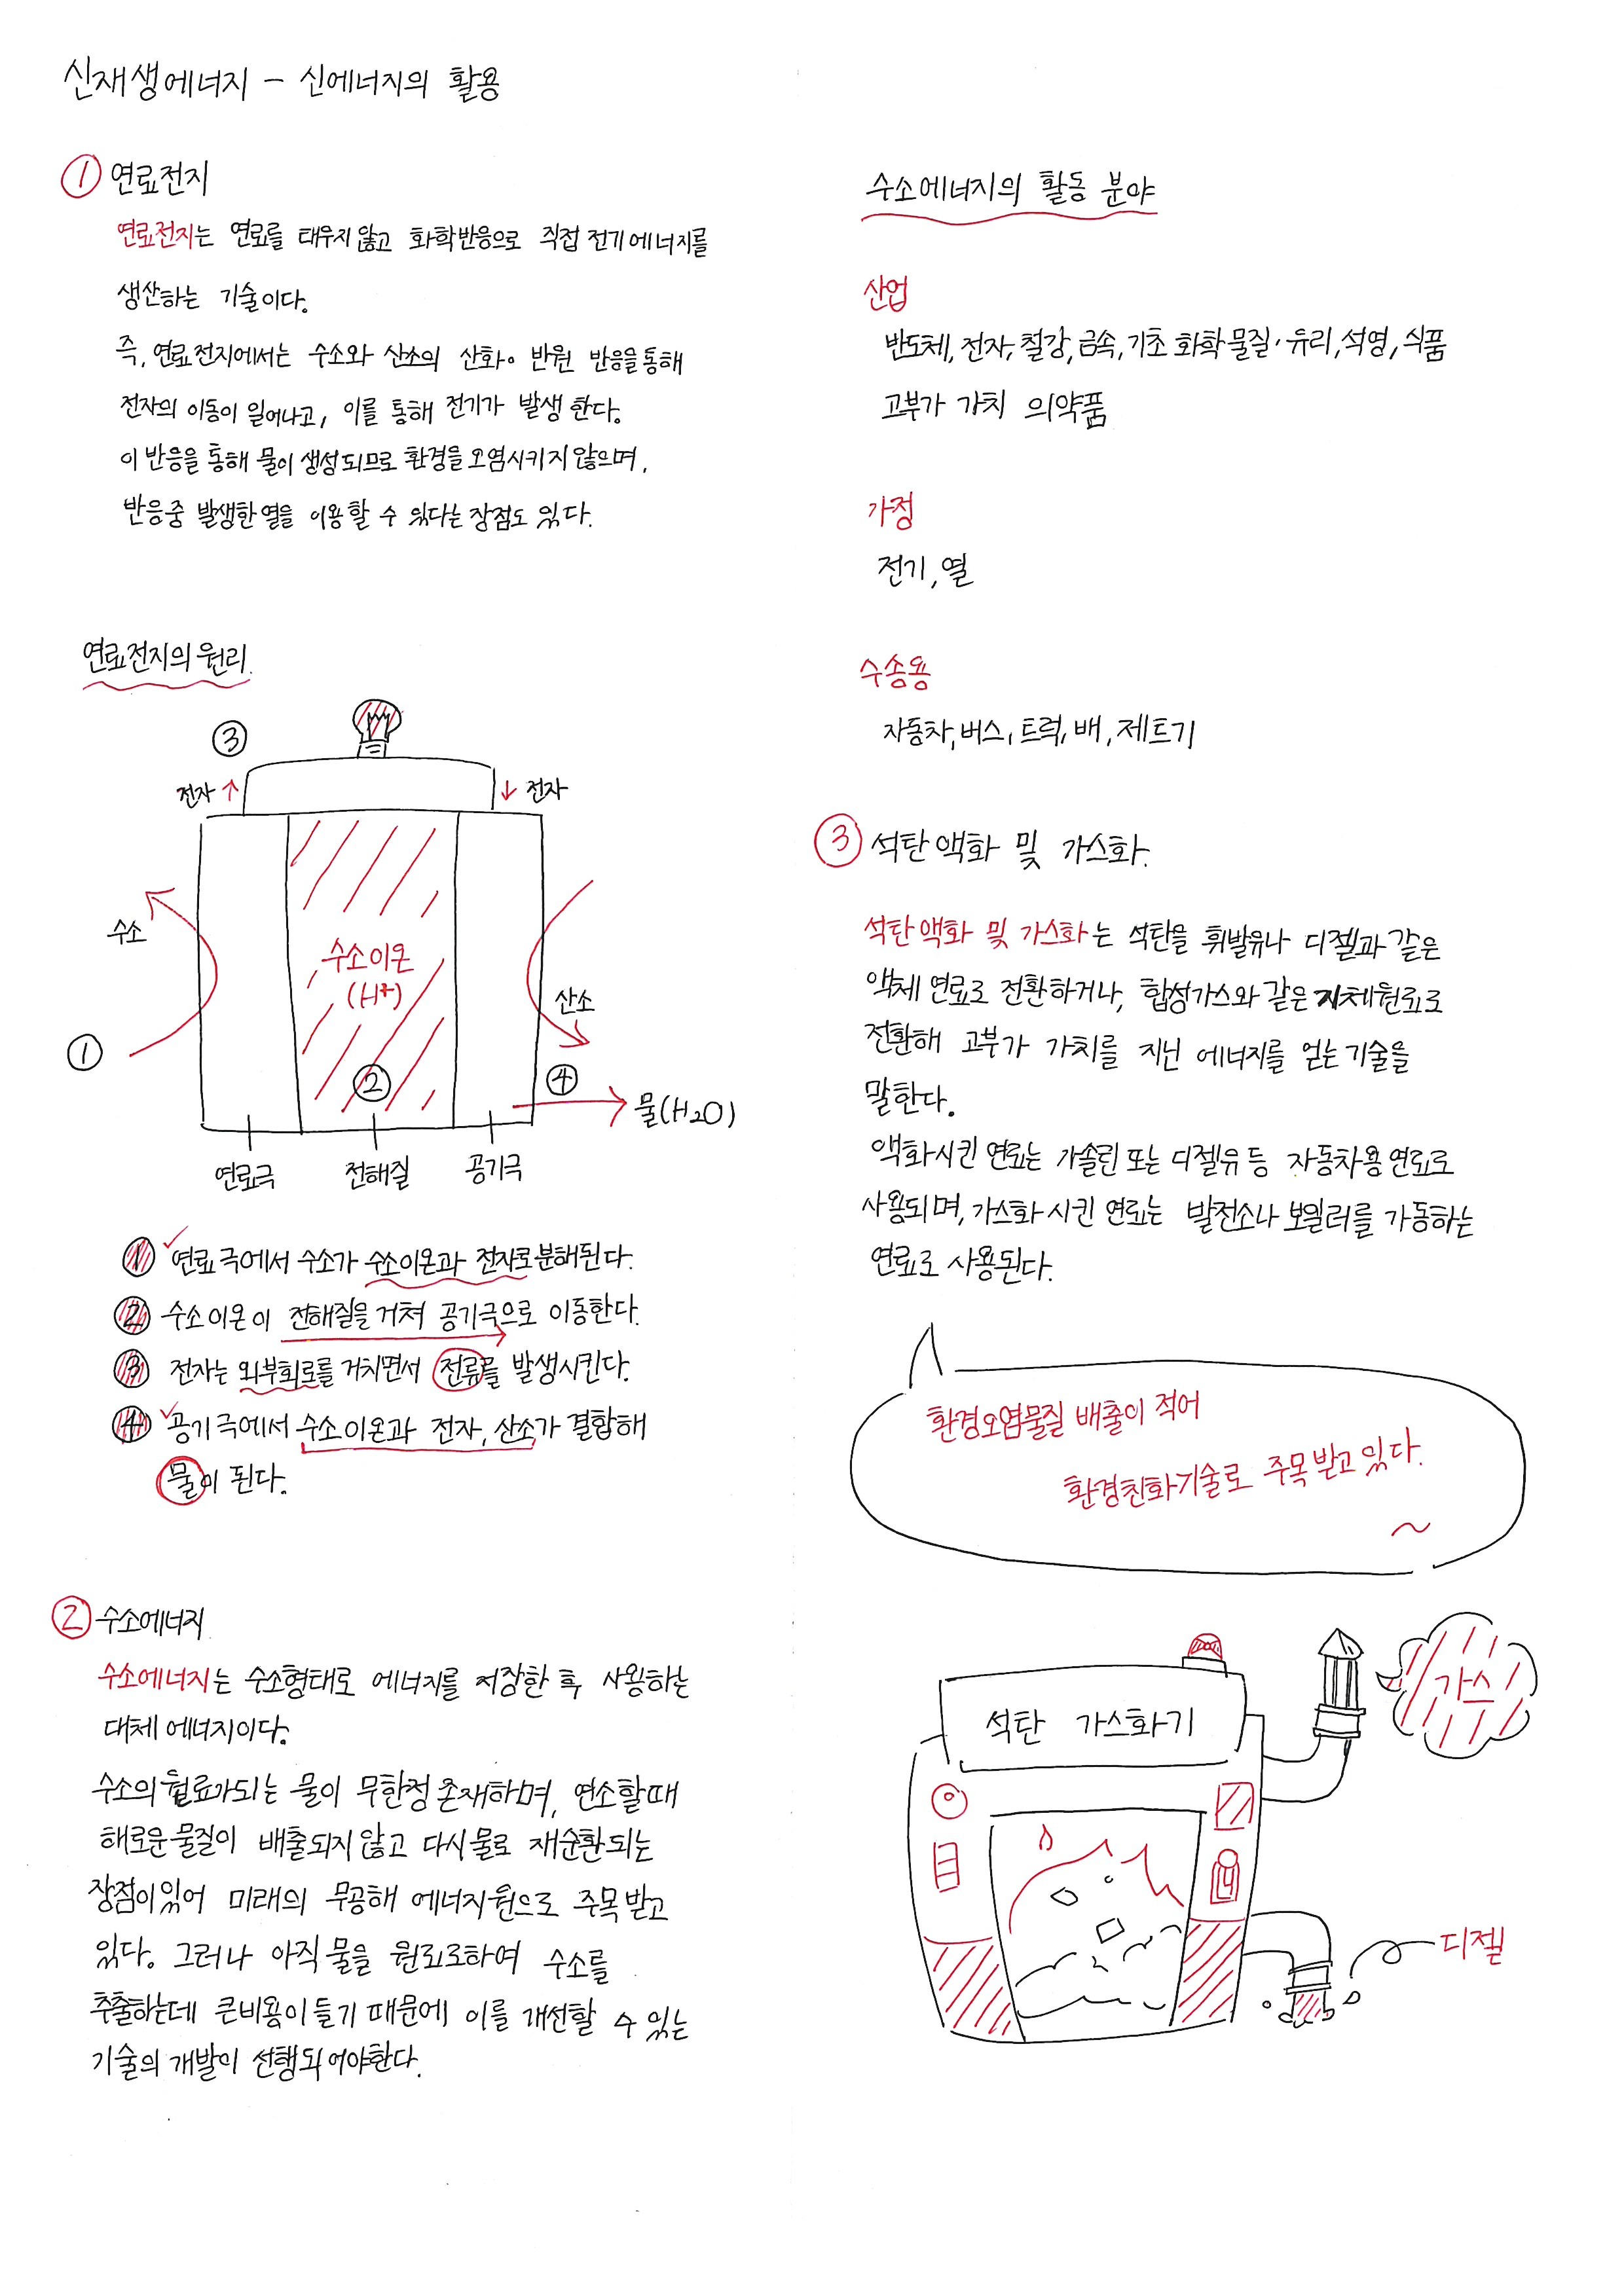 신재생에너지 – 신에너지의 활용
① 연료전지
연료전지는 연료를 태우지 않고 화학반응으로 직접 전기에너지를
생산하는 기술이다.
즉, 연료전지에서는 수소와 산소의 산화·반원 반응을 통해
전자의 이동이 일어나고, 이를 통해 전기가 발생한다.
이 반응을 통해 물이 생성되므로 환경을 오염시키지 않으며,
반응중 발생한 열을 이용할 수 있다는 장점도 있다.
연료전지의 원리
③
전자 ↑
↓ 전자
수소
수소이온
(H+)
산소
①
②
④
물(H2O)
연료극
전해질
공기극
① 연료극에서 수소가 수소이온과 전자로 분해된다.
② 수소이온이 전해질을 거쳐 공기극으로 이동한다.
③ 전자는 외부회로를 거치면서 전류를 발생시킨다.
④ 공기극에서 수소이온과 전자, 산소가 결합해
물이 된다.
② 수소에너지
수소에너지는 수소형태로 에너지를 저장한 후 사용하는
대체에너지이다.
수소의 원료가되는 물이 무한정 존재하며, 연소할때
해로운물질이 배출되지 않고 다시 물로 재순환되는
장점이있어 미래의 무공해 에너지원으로 주목받고
있다. 그러나 아직 물을 원료로하여 수소를
추출하는데 큰비용이 들기 때문에 이를 개선할 수 있는
기술의 개발이 선행되어야한다.
수소에너지의 활동 분야
산업
반도체, 전자, 철강, 금속, 기초 화학물질·유리, 석영, 식품
고부가 가치 의약품
가정
전기, 열
수송용
자동차, 버스, 트럭, 배, 제트기
③ 석탄액화 및 가스화.
석탄액화 및 가스화는 석탄을 휘발유나 디젤과 같은
액체 연료로 전환하거나, 합성가스와 같은 기체원료로
전환해 고부가 가치를 지닌 에너지를 얻는 기술을
말한다.
액화시킨 연료는 가솔린 또는 디젤유 등 자동차용 연료로
사용되며, 가스화 시킨 연료는 발전소나 보일러를 가동하는
연료로 사용된다.
환경오염물질 배출이 적어
환경친화기술로 주목받고 있다.
~
석탄 가스화기
가스
디젤